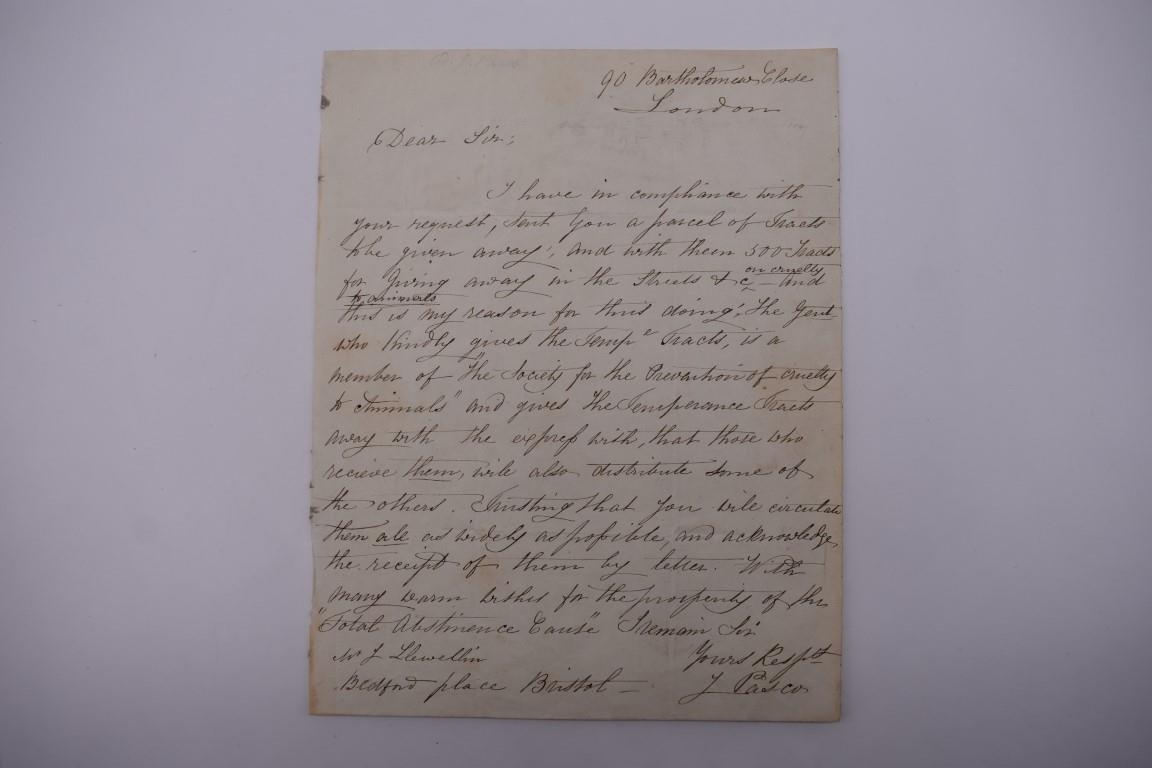 90 Bartholomew Close
London
Dear Sir;
I have in compliance with
your request, sent you a parcel of Tracts
to be given away; and with them 500 Tracts
on cruelty
for Giving away in the Streets & c, – and
to animals
this is my reason for thus doing; The Gent
who Kindly gives the Tempe Tracts, is a
member of "the Society for the Prevention of cruelty
to Animals" and gives The Temperance Tracts
away with the expreſs wish, that those who
recieve them, will also distribute some of
the others. Trusting that you will circulate
them all as widely as poſsible, and acknowledge
the receipt of them by letter. With
many warm wishes for the prosperity of the
"Total Abstinence Cause" I remain Sir
Mr J Llewellin
Yours Respfll
Bedford place Bristol –
J Pasco